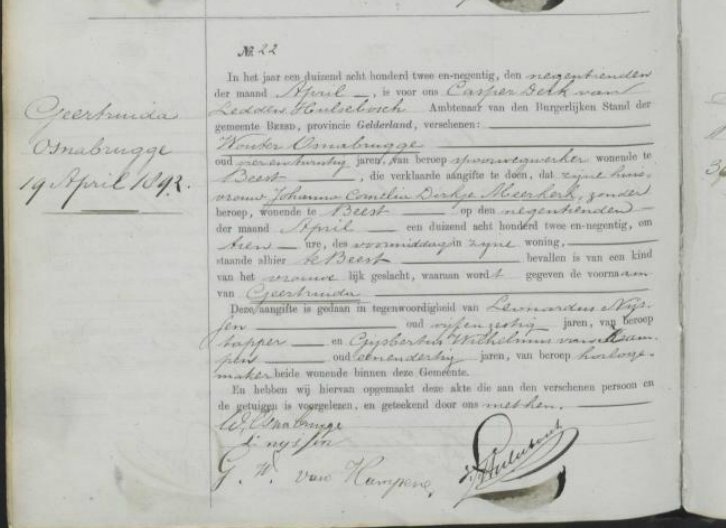 № 22
Geertruida
Osnabrugge
19 April 1892.
In het jaar een duizend acht honderd twee en-negentig, den negentienden
der maand April, is voor ons Casper Derk van
Ledden Hulsebosch Ambtenaar van den Burgerlijken Stand der
gemeente BEESD, provincie Gelderland, verschenen:
Wouter Osnabrugge
oud vierentwintig jaren, van beroep spoorwegwerker wonende te
Beest, die verklaarde aangifte te doen, dat zijne huis-
vrouw, Johanna Cornelia Dirkje Meerkerk, zonder
beroep, wonende te Beest op den negentienden
der maand April een duizend acht honderd twee en-negentig, om
ure, des voormiddags in zijne woning,
staande alhier te Beest bevallen is van een kind
van het vrouwelijk geslacht, waaraan wordt gegeven de voornaam
van Geertruida
Deze aangifte is gedaan in tegenwoordigheid van Leonardus Nijs-
sen oud vijfenzestig jaren, van beroep
tapper en Gijsbertus Wilhelmus van Kam-
pen oud eenendertig jaren, van beroep horloge-
maker beide wonende binnen deze Gemeente.
En hebben wij hiervan opgemaakt deze akte die aan den verschenen persoon en
de getuigen is voorgelezen, en geteekend door ons met hen.
W. Osnabrugge
L nyssen
G. W. van Kampen